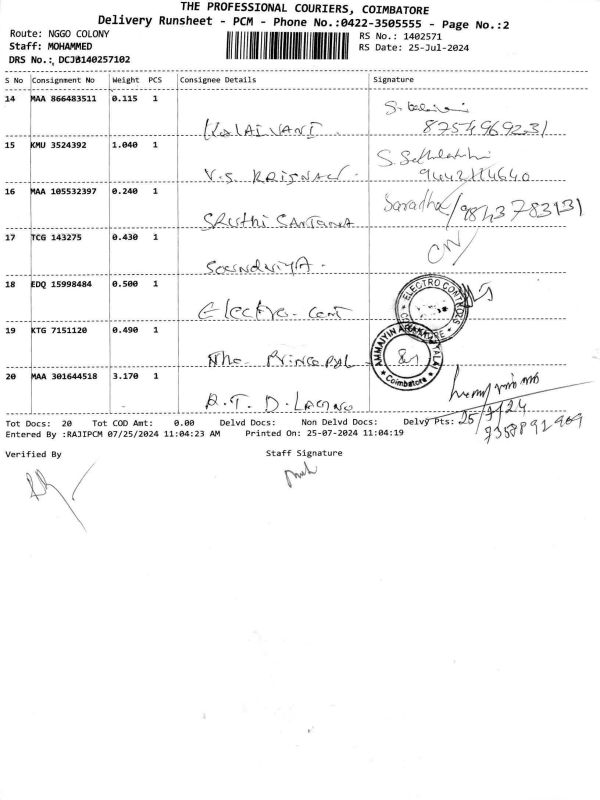 THE PROFESSIONAL COURIERS, COIMBATORE
Delivery Runsheet - PCM - Phone No.:0422-3505555 - Page No.:2
Route: NGGO COLONY
RS No.: 1402571
Staff: MOHAMMED
RS Date: 25-Jul-2024
DRS No.: DCJB140257102
S No Consignment No Weight PCS Consignee Details Signature
14 MAA 866483511 0.115 1
KALAIVANI. 8754969231
15 KMU 3524392 1.040 1
V.S. KRISNAN.
16 MAA 105532397 0.240 1 Saradha/9843783131
SRUTHI SANJANA
17 TCG 143275 0.430 1
SOUNDARIYA.
18 EDQ 15998484 0.500 1
ELECTRO
Electro-
19 KTG 7151120 0.490 1
Coimbatore
The PRINCEPAL
20 MAA 301644518 3.170 1
R.T.D.
Tot Docs: 20 Tot COD Amt: 0.00 Delvd Docs: Non Delvd Docs: Delvy Pts: 25/7/24
7358892909
Entered By :RAJIPCM 07/25/2024 11:04:23 AM Printed On: 25-07-2024 11:04:19
Verified By Staff Signature